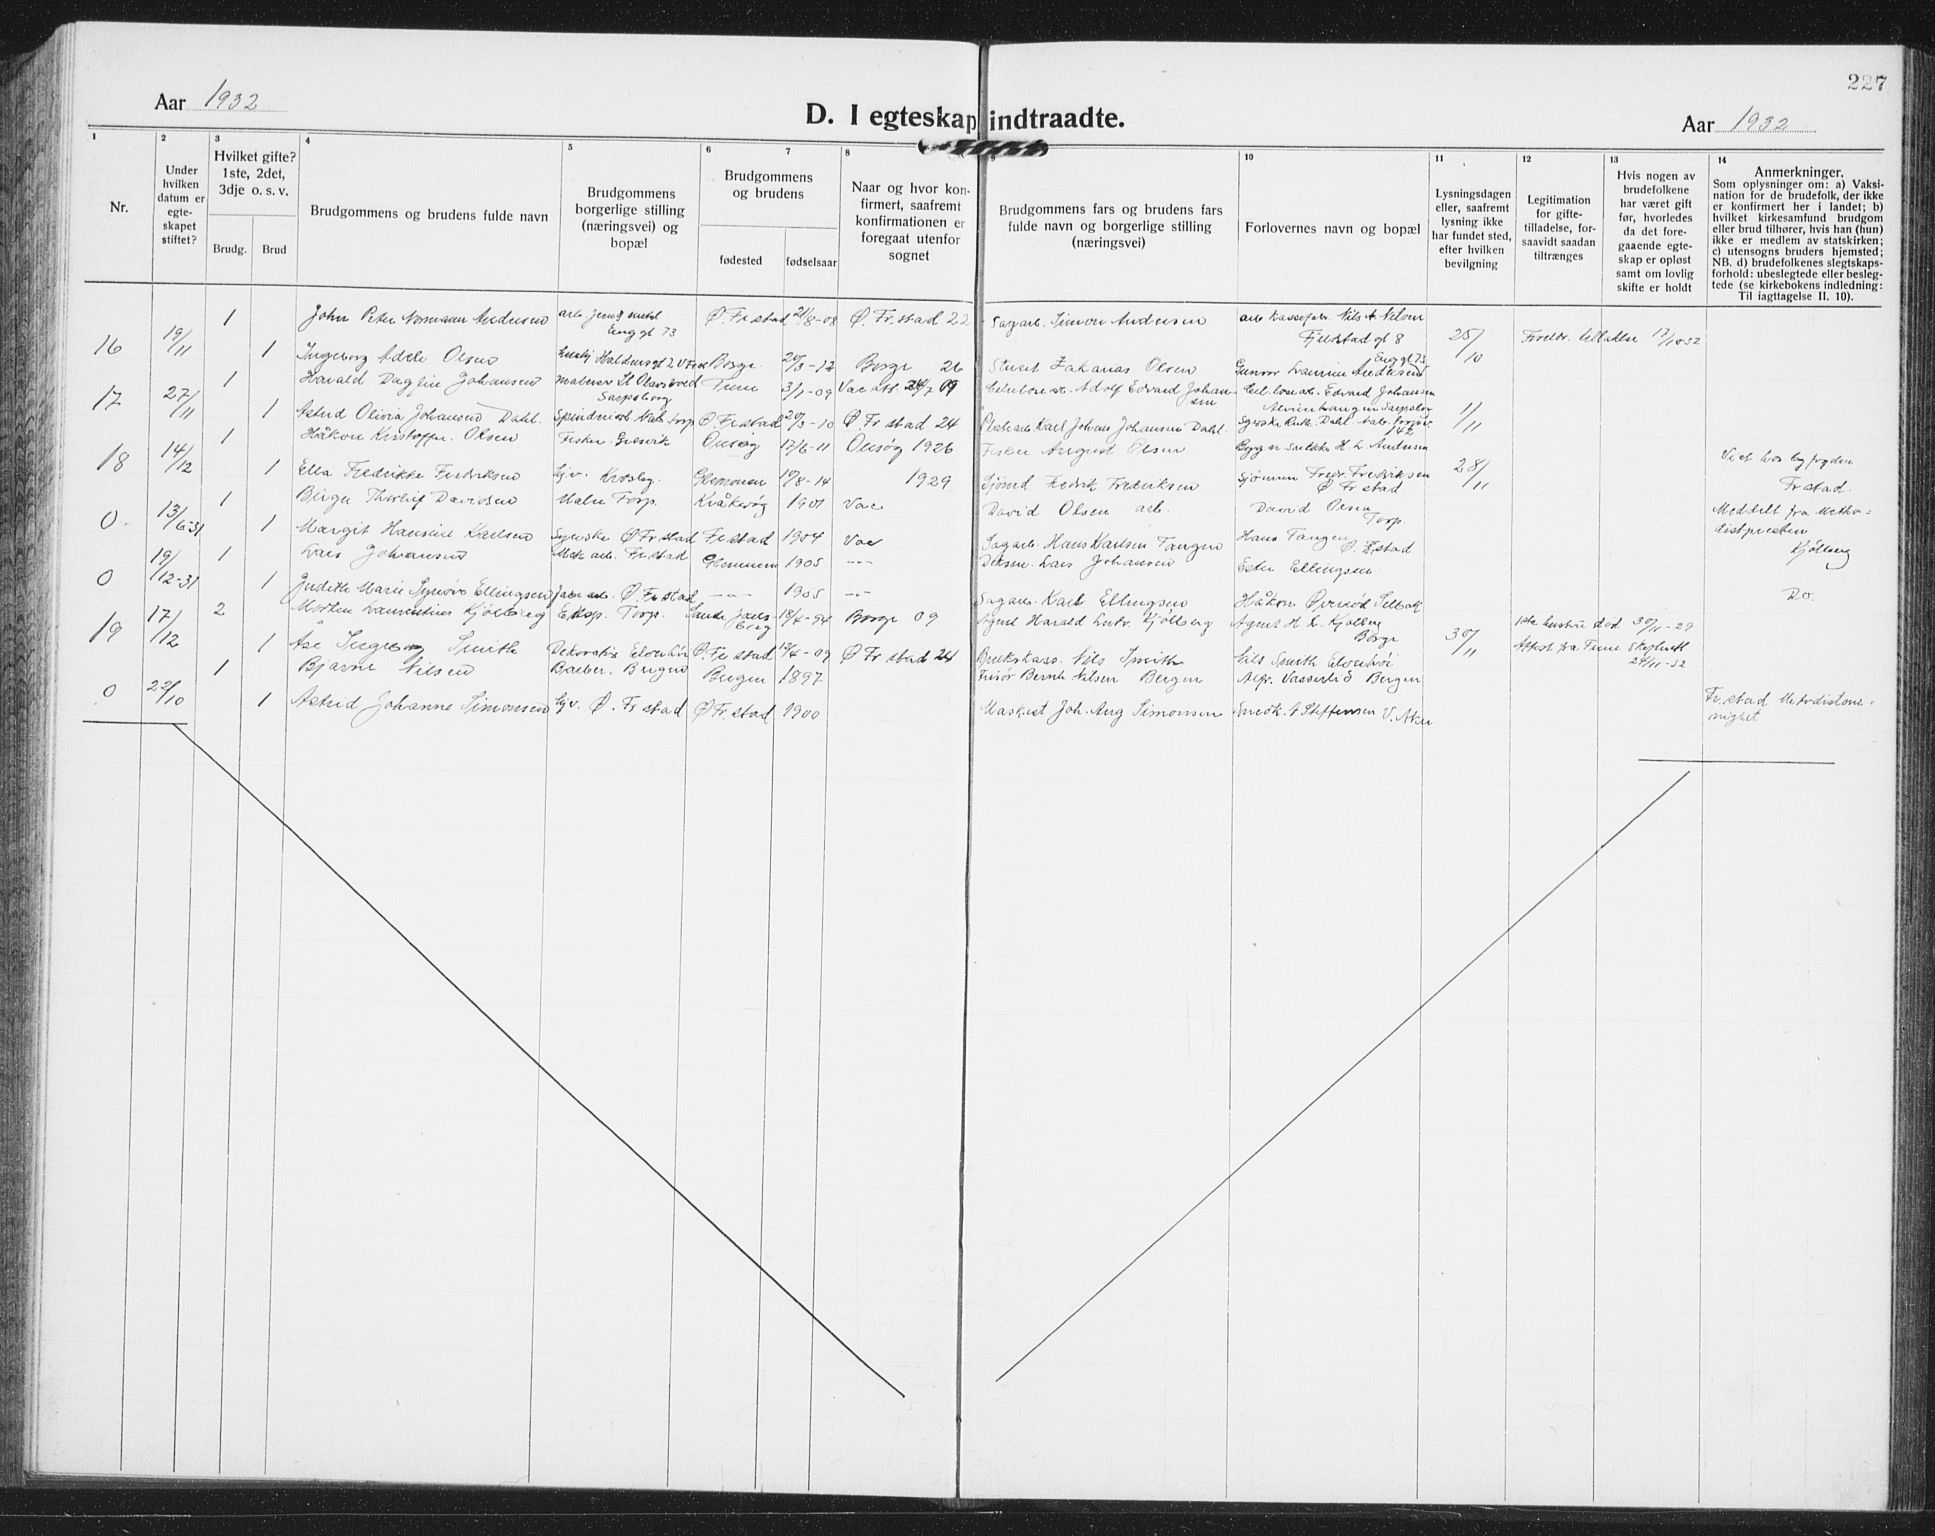 227
Aar 1932
D. I egteskap indtraadte.
Aar 1932
1 2 3 4 5 6 7 8 9 10 11 12 13 14
Nr.
Under hvilken datum er egte-skapet stiftet?
Hvilket gifte? 1ste, 2det, 3dje o. s. v.
Brudg. Brud
Brudgommens og brudens fulde navn
Brudgommens borgerlige stilling (næringsvei) og bopæl
Brudgommens og brudens
fødested fødselsaar
Naar og hvor kon-firmert, saafremt konfirmationen er foregaat utenfor sognet
Brudgommens fars og brudens fars fulde navn og borgerlige stilling (næringsvei)
Forlovernes navn og bopæl
Lysningsdagen eller, saafremt lysning ikke har fundet sted, efter hvilken bevilgning
Legitimation for gifte-tilladelse, for-saavidt saadan tiltrænges
Hvis nogen av brudefolkene har været gift før, hvorledes da det fore-gaaende egte-skap er opløst samt om lovlig skifte er holdt
Anmerkninger.
Som oplysninger om: a) Vaksi-nation for de brudefolk, der ikke er konfirmert her i landet; b) hvilket kirkesamfund brudgom eller brud tilhører, hvis han (hun) ikke er medlem av statskirken; c) utensogns bruders hjemsted; NB. d) brudefolkenes slegtskaps-forhold: ubeslegtede eller besleg-tede (se kirkebokens indledning: Til iagttagelse II. 10).
16 19/11 1 John Peter Normann Andersen arb. Enggt 73 Ø. Frstad 21/8-08 Ø. Fr.stad 22 Sagarb. Simon Andersen Nils A Nilsen Fjeldstad gt 8 25/10
1 Ingeborg Adele Olsen Borge 20/3-12 Borge 26 Stuert Zakarias Olsen Enggt 73
17 27/11 1 Harald Dagfin Johansen Maler St Olavs vold Sarpsborg Tune 3/1-09 Adolf Edvard Johansen Edvard Johansen 1/11
1 Astrid Olivia Johansen Dahl. Ø. Frstad 20/3-10 Ø. Fr stad 24 Karl Johan Johansen Dahl
18 14/12 1 Håkon Kristoffer. Olsen Fisker Gresvik Onsøy 17/6-11 Onsøy 1926 Fisker August Olsen H. L. Andersen 28/11 Viet hos byfogden Fr stad.
1 Ella Fredrikke Fredriksen Glemmen 10/8-14 1929 Sjømd Fredrik Fredriksen Sjømann Fredr. Fredriksen Ø Fr stad
0. 13/6-31 1 Birger Thorleif Davidsen Maler Torp. Kråkerøy 1901 David Olsen arb. David Olsen Torp Meddelt fra Metho-distpresten Kjølberg
1 Margit Hansine Karlsen Syerske Ø Fr.stad Fr stad 1904 Sagarb. Hans Karlsen Tangen Hans Tangen Ø. Frstad
0 19/12-31 1 Lars Johansen Mek arb. Fr.stad Glemmen 1905 -"- Lars Johansen Ester Ellingsen Do.
1 Judith Marie Synøve Ellingsen Ø. Fr stad -"- 1905 -"- Sagarb. Karl Ellingsen
19 17/12 2 Morten Laurentius Kjølberg Eksp. Torp. 18/4-94 Borge 09 Agent Harald Ludv. Kjølberg Agent H L. Kjølberg Borge 30/11 1ste hustru død 30/11-29
1 Åse Ingeborg Smith Ø. Fr stad 19/4-09 Ø Fr stad 24 Nils Smith Nils Smith Attest fra Tune Skifterett 24/11-32
0 22/10 1 Bjarne Nilsen Barber. Bergen Bergen 1897 Bernh Nilsen Bergen Bergen Fr.stad Metodistme-nighet
1 Astrid Johanne Simonsen Hjv. Ø. Fr stad Ø Fr.stad 1900 Maskist Joh. Aug Simonsen Steffensen V. Aker